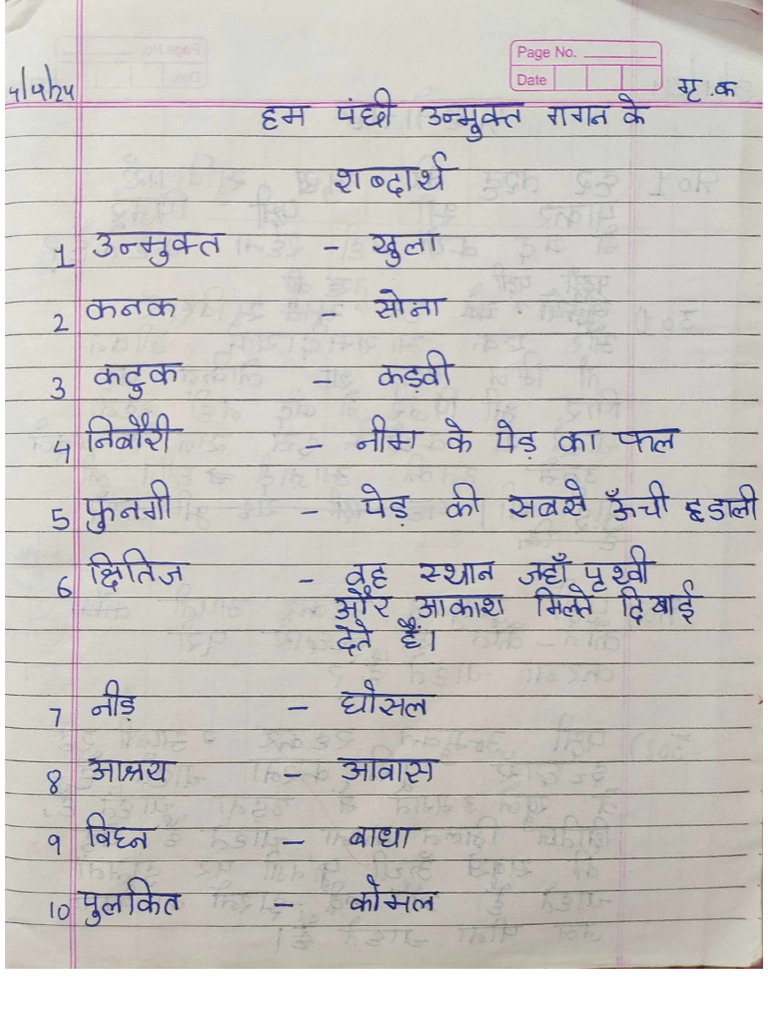 Page No.
Date
4/4/24
गृ.क
हम पंछी उन्मुक्त गगन के
शब्दार्थ
1 उन्मुक्त - खुला
2 कनक - सोना
3 कटुक - कड़वी
4 निबौरी - नीम के पेड़ का फल
5 फुनगी - पेड़ की सबसे ऊँची डाली
6 क्षितिज - वह स्थान जहाँ पृथ्वी
और आकाश मिलते दिखाई
देते हैं।
7 नीड़ - घोसल
8 आश्रय - आवास
9 विघ्न - बाधा
10 पुलकित - कोमल